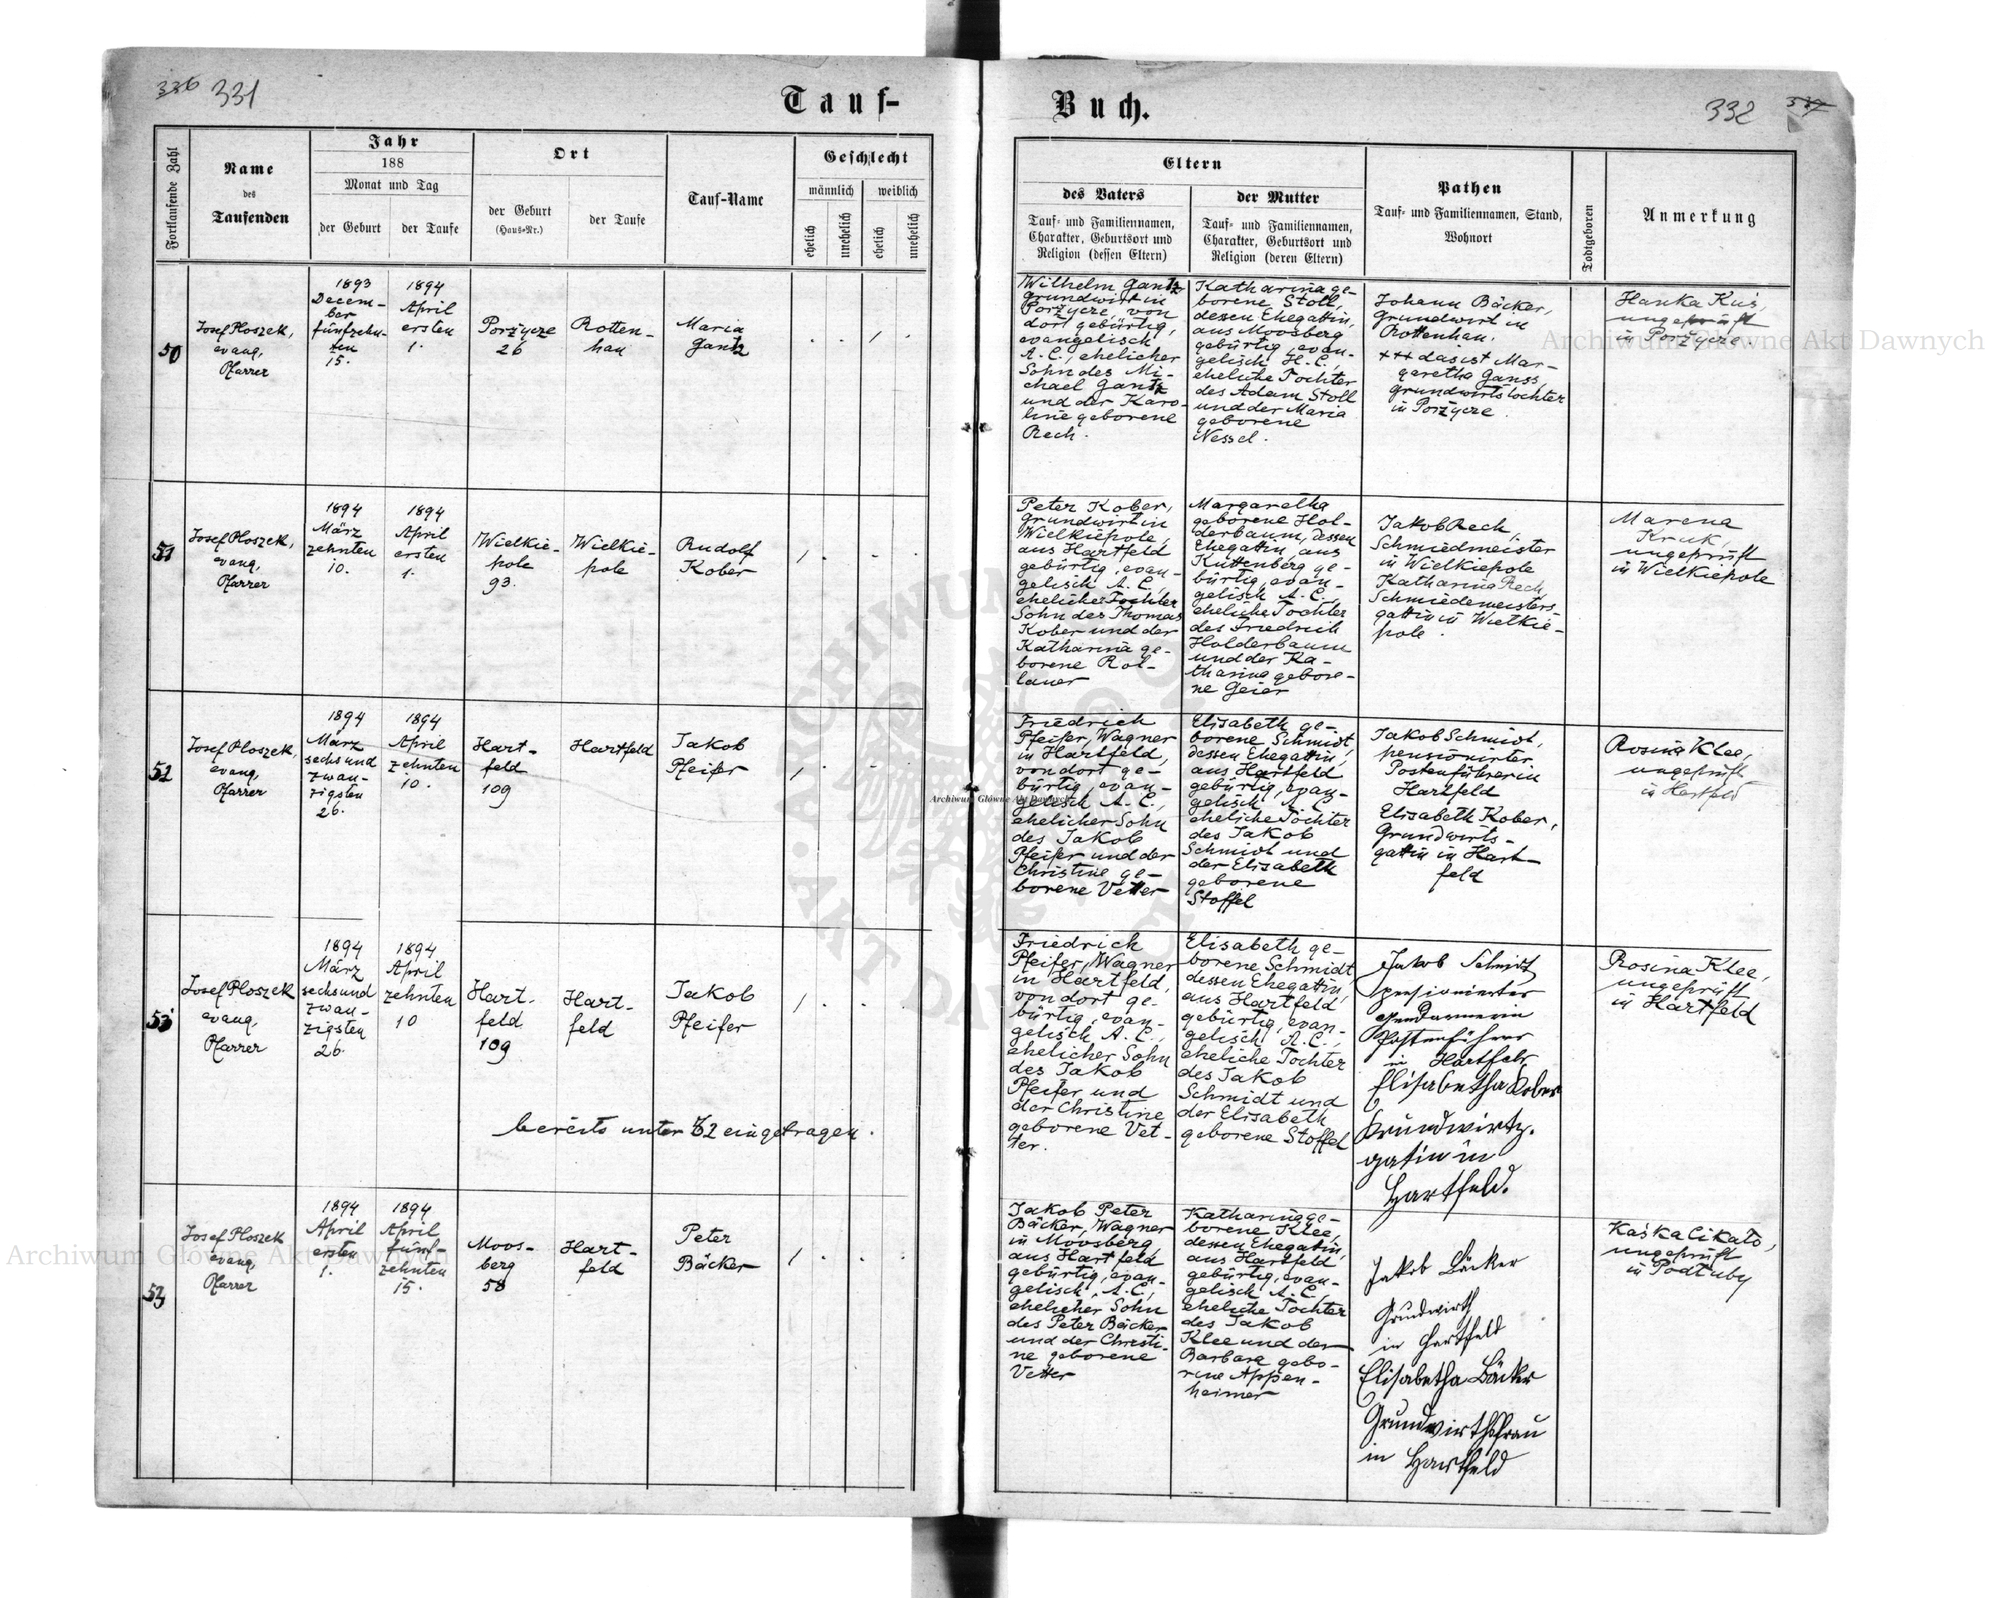 336 331
Tauf-
Buch.
332 337
Fortlaufende Zahl
Name
des
Taufenden
Jahr
188
Monat und Tag
der Geburt
der Taufe
Ort
der Geburt
(Haus-Nr.)
der Taufe
Tauf-Name
Geschlecht
männlich
weiblich
ehelich
unehelich
ehelich
unehelich
Eltern
des Vaters
Tauf- und Familiennamen,
Charakter, Geburtsort und
Religion (dessen Eltern)
der Mutter
Tauf- und Familiennamen,
Charakter, Geburtsort und
Religion (deren Eltern)
Pathen
Tauf- und Familiennamen, Stand,
Wohnort
Todtgeboren
Anmerkung
50
Josef Ploszek,
evang.
Pfarrer
1893
Decem-
ber
fünfzehn-
ten
15.
1894
April
ersten
1.
Porzycze
26
Rotten-
han
Maria
Gantz
Wilhelm Gantz
Grundwirt in
Porzycze, von
dort gebürtig,
evangelisch
A.C., ehelicher
Sohn des Mi-
chael Gantz
und der Karo-
line geborene
Rech.
Katharina ge-
borene Stoll,
dessen Ehegattin,
aus Moosberg
gebürtig, evan-
gelisch H.C.,
eheliche Tochter
des Adam Stoll
und der Maria
geborene
Nessel.
Johann Bäcker,
Grundwirt in
Rottenhan.
+++ das ist Mar-
garetha Ganss
Grundwirtstochter
in Porzycze.
Hanka Kus,
ungeprüft
in Porzycze.
51
Josef Ploszek,
evang.
Pfarrer
1894
März
zehnten
10.
1894
April
ersten
1.
Wielkie-
pole
93.
Wielkie-
pole
Rudolf
Kober
Peter Kober,
Grundwirt in
Wielkiepole,
aus Hartfeld
gebürtig, evan-
gelisch A.C.,
eheliche Tochter
Sohn des Thomas
Kober und der
Katharina ge-
borene Rol-
lauer
Margaretha
geborene Hol-
derbaum, dessen
Ehegattin, aus
Kuttenberg ge-
bürtig, evan-
gelisch A.C.,
eheliche Tochter
des Friedrich
Holderbaum
und der Ka-
tharina gebore-
ne Geier
Jakob Rech,
Schmiedmeister
in Wielkiepole
Katharina Rech
Schmiedemeisters-
gattin in Wielkie-
pole.
Marena
Kruk,
ungeprüft
in Wielkiepole
52
Josef Ploszek,
evang.
Pfarrer
1894
März
sechsund
zwan-
zigsten
26.
1894
April
zehnten
10.
Hart-
feld
109
Hartfeld
Jakob
Pfeifer
Friedrich
Pfeifer, Wagner
in Hartfeld,
von dort ge-
bürtig, evan-
gelisch A.C.,
ehelicher Sohn
des Jakob
Pfeifer und der
Christine ge-
borene Vetter
Elisabeth ge-
borene Schmidt,
dessen Ehegattin,
aus Hartfeld
gebürtig, evan-
gelisch A.C.
eheliche Tochter
des Jakob
Schmidt und
der Elisabeth
geborene
Stoffel
Jakob Schmidt,
pensionirter
Postenführer in
Hartfeld
Elisabeth Kober,
Grundwirts-
gattin in Hart-
feld
Rosina Klee,
ungeprüft
in Hartfeld
53
Josef Ploszek
evang.
Pfarrer
1894
März
sechsund
zwan-
zigsten
26.
1894
April
zehnten
10
Hart-
feld
109
Hart-
feld
Jakob
Pfeifer
bereits unter 52 eingetragen.
Friedrich
Pfeifer, Wagner
in Hartfeld,
von dort ge-
bürtig, evan-
gelisch A.C.,
ehelicher Sohn
des Jakob
Pfeifer und
der Christine
geborene Vet-
ter.
Elisabeth ge-
borene Schmidt,
dessen Ehegattin,
aus Hartfeld
gebürtig, evan-
gelisch A.C.,
eheliche Tochter
des Jakob
Schmidt und
der Elisabeth
geborene Stoffel
Jakob Schmidt
pensionierter
Gendarmerie
Postenführer
in Hartfeld
Elisabetha Kober
Grundwirtz.
gatin in
Hartfeld.
Rosina Klee,
ungeprüft
in Hartfeld
53
Josef Ploszek
evang.
Pfarrer
1894
April
ersten
1.
1894
April
fünf-
zehnten
15.
Moos-
berg
58
Hart-
feld
Peter
Bäcker
Jakob Peter
Bäcker, Wagner
in Moosberg
aus Hartfeld
gebürtig, evan-
gelisch, A.C.,
ehelicher Sohn
des Peter Bäcker
und der Christi-
ne geborene
Vetter
Katharina ge-
borene Klee,
dessen Ehegattin,
aus Hartfeld
gebürtig, evan-
gelisch A.C.,
eheliche Tochter
des Jakob
Klee und der
Barbara gebo-
rene Appen-
heimer
Jakob Bäcker
Grundwirth
in Hartfeld
Elisabetha Bäcker
Grundwirthsfrau
in Hartfeld
Kaśka Cikało,
ungeprüft
in Podłuby
Archiwum Główne Akt Dawnych
Archiwum Główne Akt Dawnych
Archiwum Główne Akt Dawnych